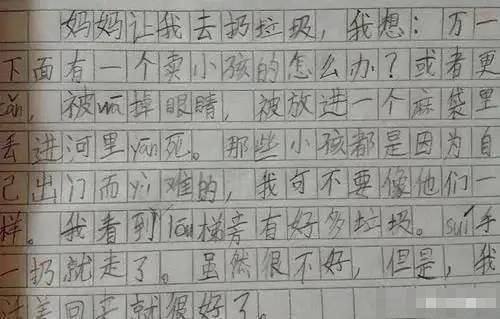 妈妈让我去扔垃圾,我想:万一
下面有一个卖小孩的怎么办?或者更
cǎn,被wā掉眼睛,被放进一个麻袋里
丢进河里yān死。那些小孩都是因为自
己出门而yù难的,我可不要像他们一
样。我看到lóu梯旁有好多垃圾。suí手
一扔就走了。虽然很不好,但是,我
活着回去就很好了。